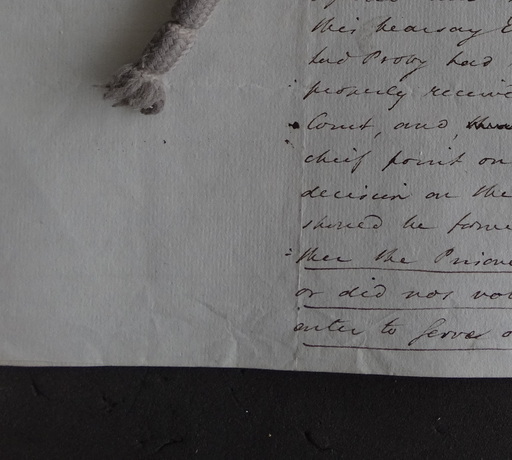 this hearsay E
had Proby had
properly receive
Court, and,
cheif point on
decision on the
should be form
= ther the Prisone
or did not vol
enter to serve o